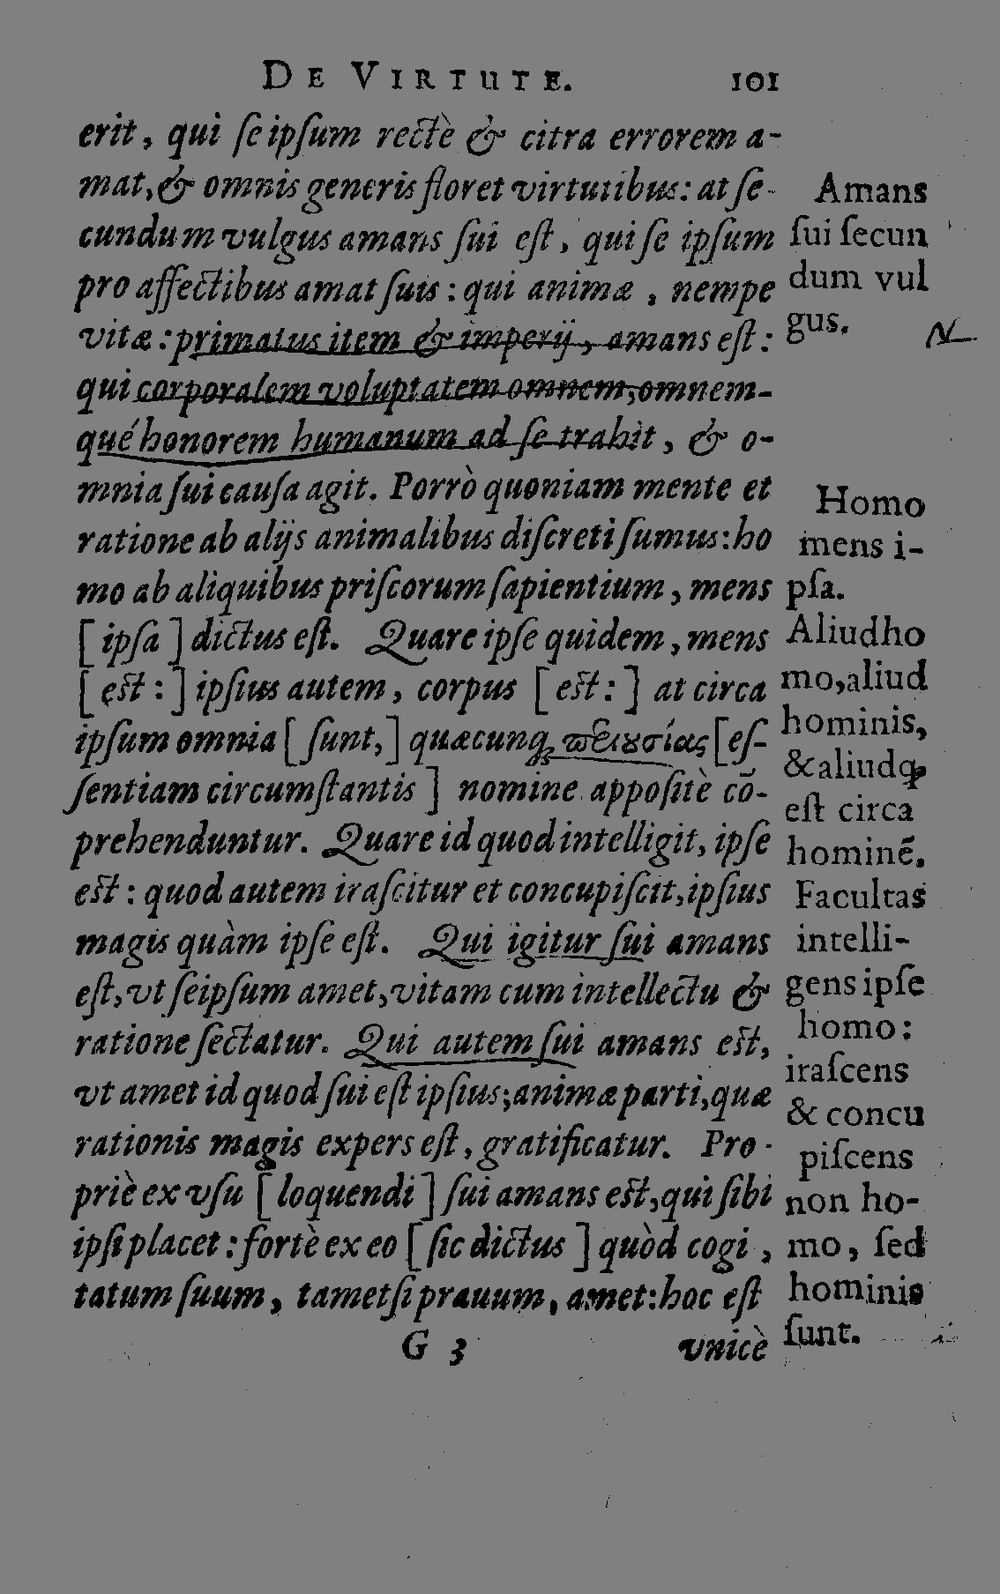 DE VIRTUTE. 101
erit, qui ſeipſum rectè & citra errorem a-
mat, & omnis generis floret virtutibus: at ſe-
cundum vulgus amans ſui eſt, qui ſe ipſum
pro affectibus amat ſuis: qui animæ, nempe
vitæ: primatus item & imperij, amans eſt:
qui corporalem voluptatem omnem, omnem-
qué honorem humanum ad ſe trahit, & o-
mnia ſui cauſa agit. Porrò quoniam mente et
ratione ab alijs animalibus diſcreti ſumus: ho
mo ab aliquibus priſcorum ſapientium, mens
[ ipſa ] dictus eſt. Quare ipſe quidem, mens
[ est: ] ipſius autem, corpus [ est: ] at circa
ipſum omnia [ ſunt, ] quæcunq; πειουσίας [eſ-
ſentiam circumſtantis ] nomine appoſitè cō-
prehenduntur. Quare id quod intelligit, ipſe
est: quod autem iraſcitur et concupiſcit, ipſius
magis quàm ipſe eſt. Qui igitur ſui amans
eſt, vt ſeipſum amet, vitam cum intellectu &
ratione ſectatur. Qui autem ſui amans est,
vt amet id quod ſui eſt ipſius; animæ parti, quæ
rationis magis expers eſt, gratificatur. Pro-
priè ex vſu [ loquendi ] ſui amans est, qui ſibi
ipſi placet: fortè ex eo [ ſic dictus ] quòd cogi,
tatum ſuum, tametſi prauum, amet: hoc eſt
G 3 vnicè
Amans
ſui ſecun
dum vul
gus.
N
Homo
mens i-
pſa.
Aliud ho
mo, aliud
hominis,
& aliudq;
eſt circa
hominē.
Facultas
intelli-
gens ipſe
homo:
iraſcens
& concu
piſcens
non ho-
mo, ſed
hominis
ſunt.